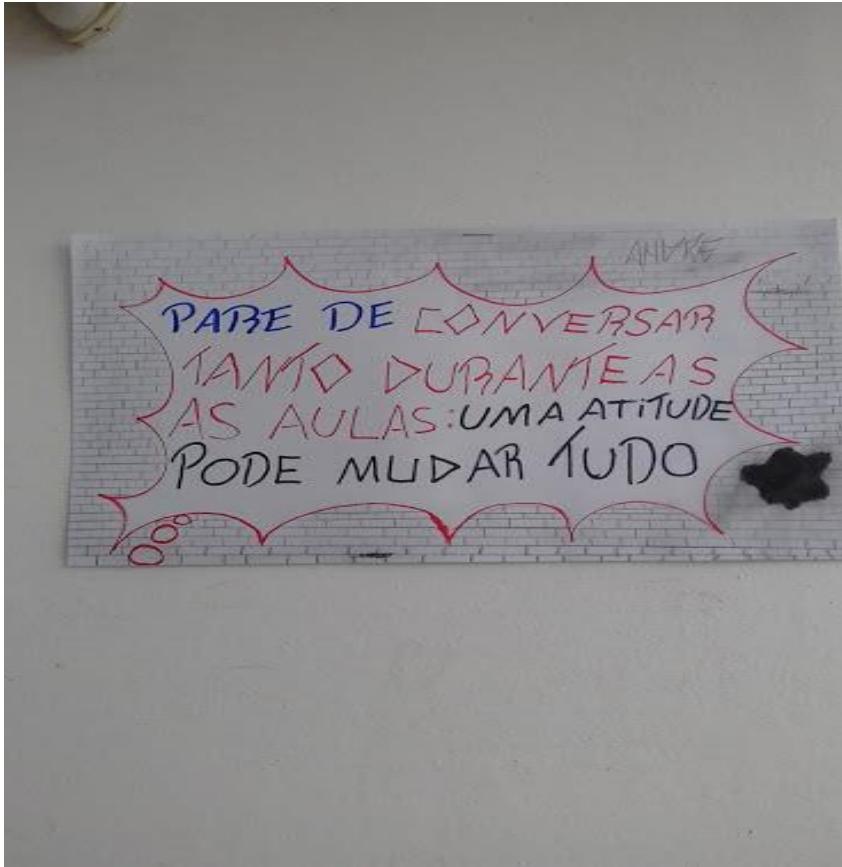 ANDRE
PARE DE CONVERSAR
TANTO DURANTE AS
AS AULAS: UMA ATITUDE
PODE MUDAR TUDO